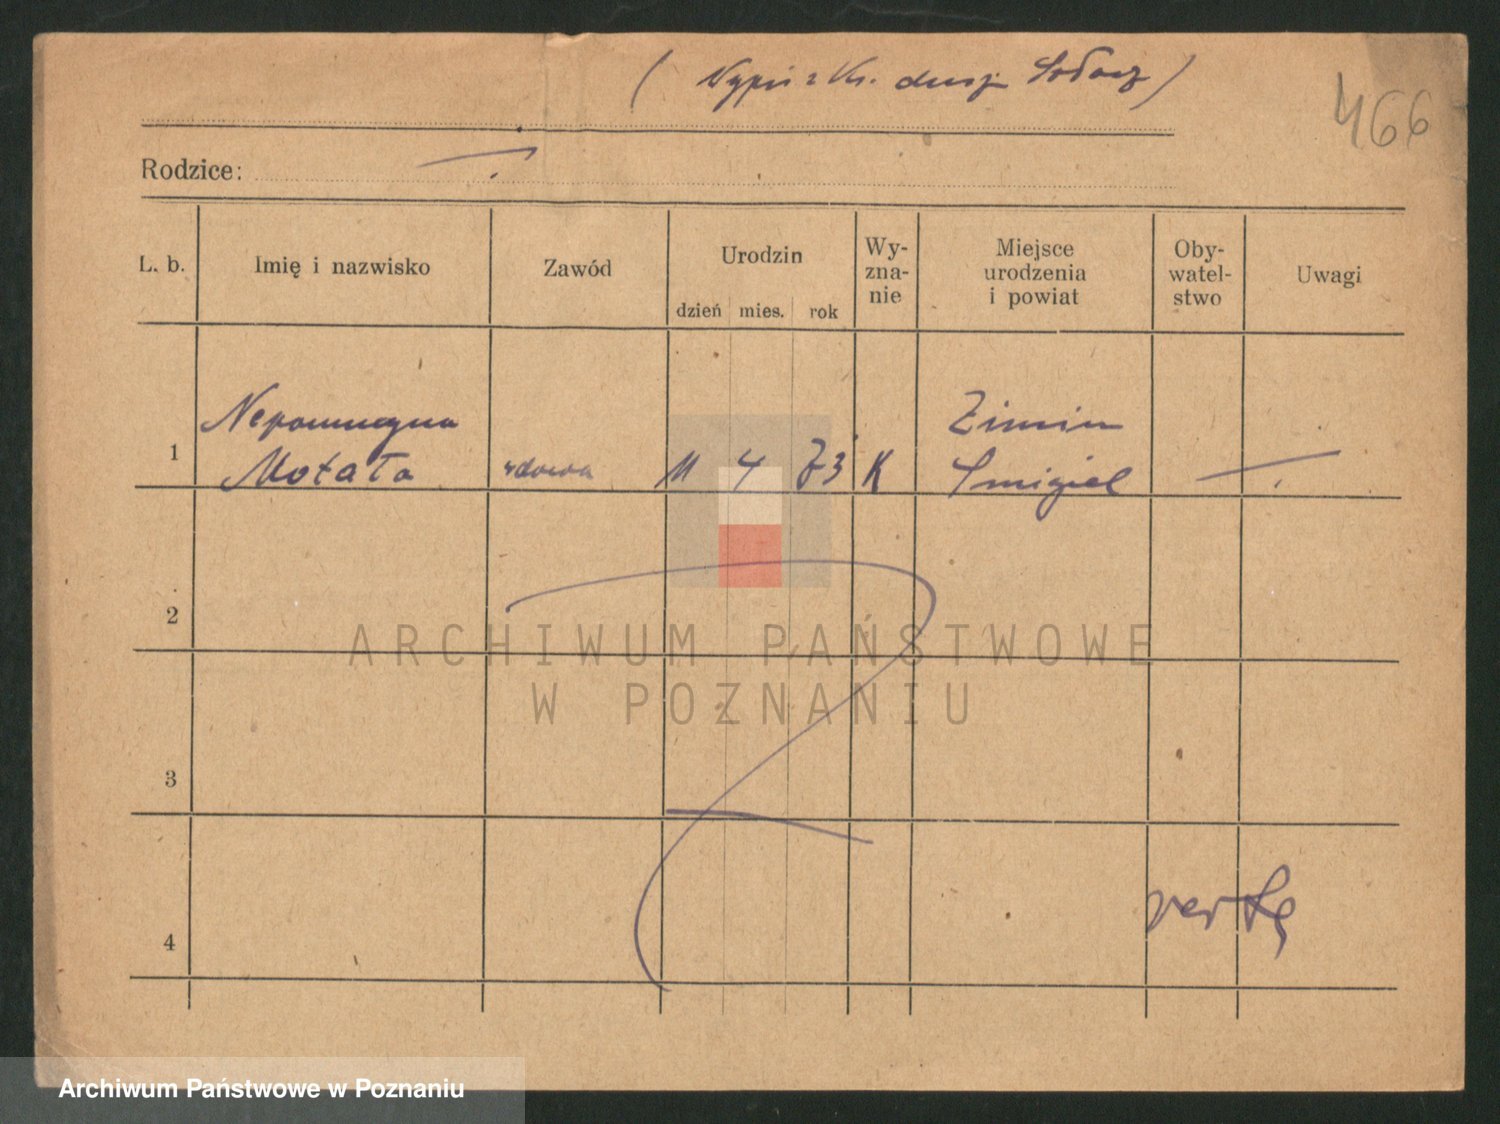 ( Wypis z Ks. dusz Sołacz )
466
Rodzice:
L. b.
Imię i nazwisko
Zawód
Urodzin
dzień
mies.
rok
Wy-
zna-
nie
Miejsce
urodzenia
i powiat
Oby-
watel-
stwo
Uwagi
1
Nepomucyna
Motała
wdowa
11
4
73
K
Zimin
Smigiel
2
3
4
vertę
ARCHIWUM PAŃSTWOWE
W POZNANIU
Archiwum Państwowe w Poznaniu